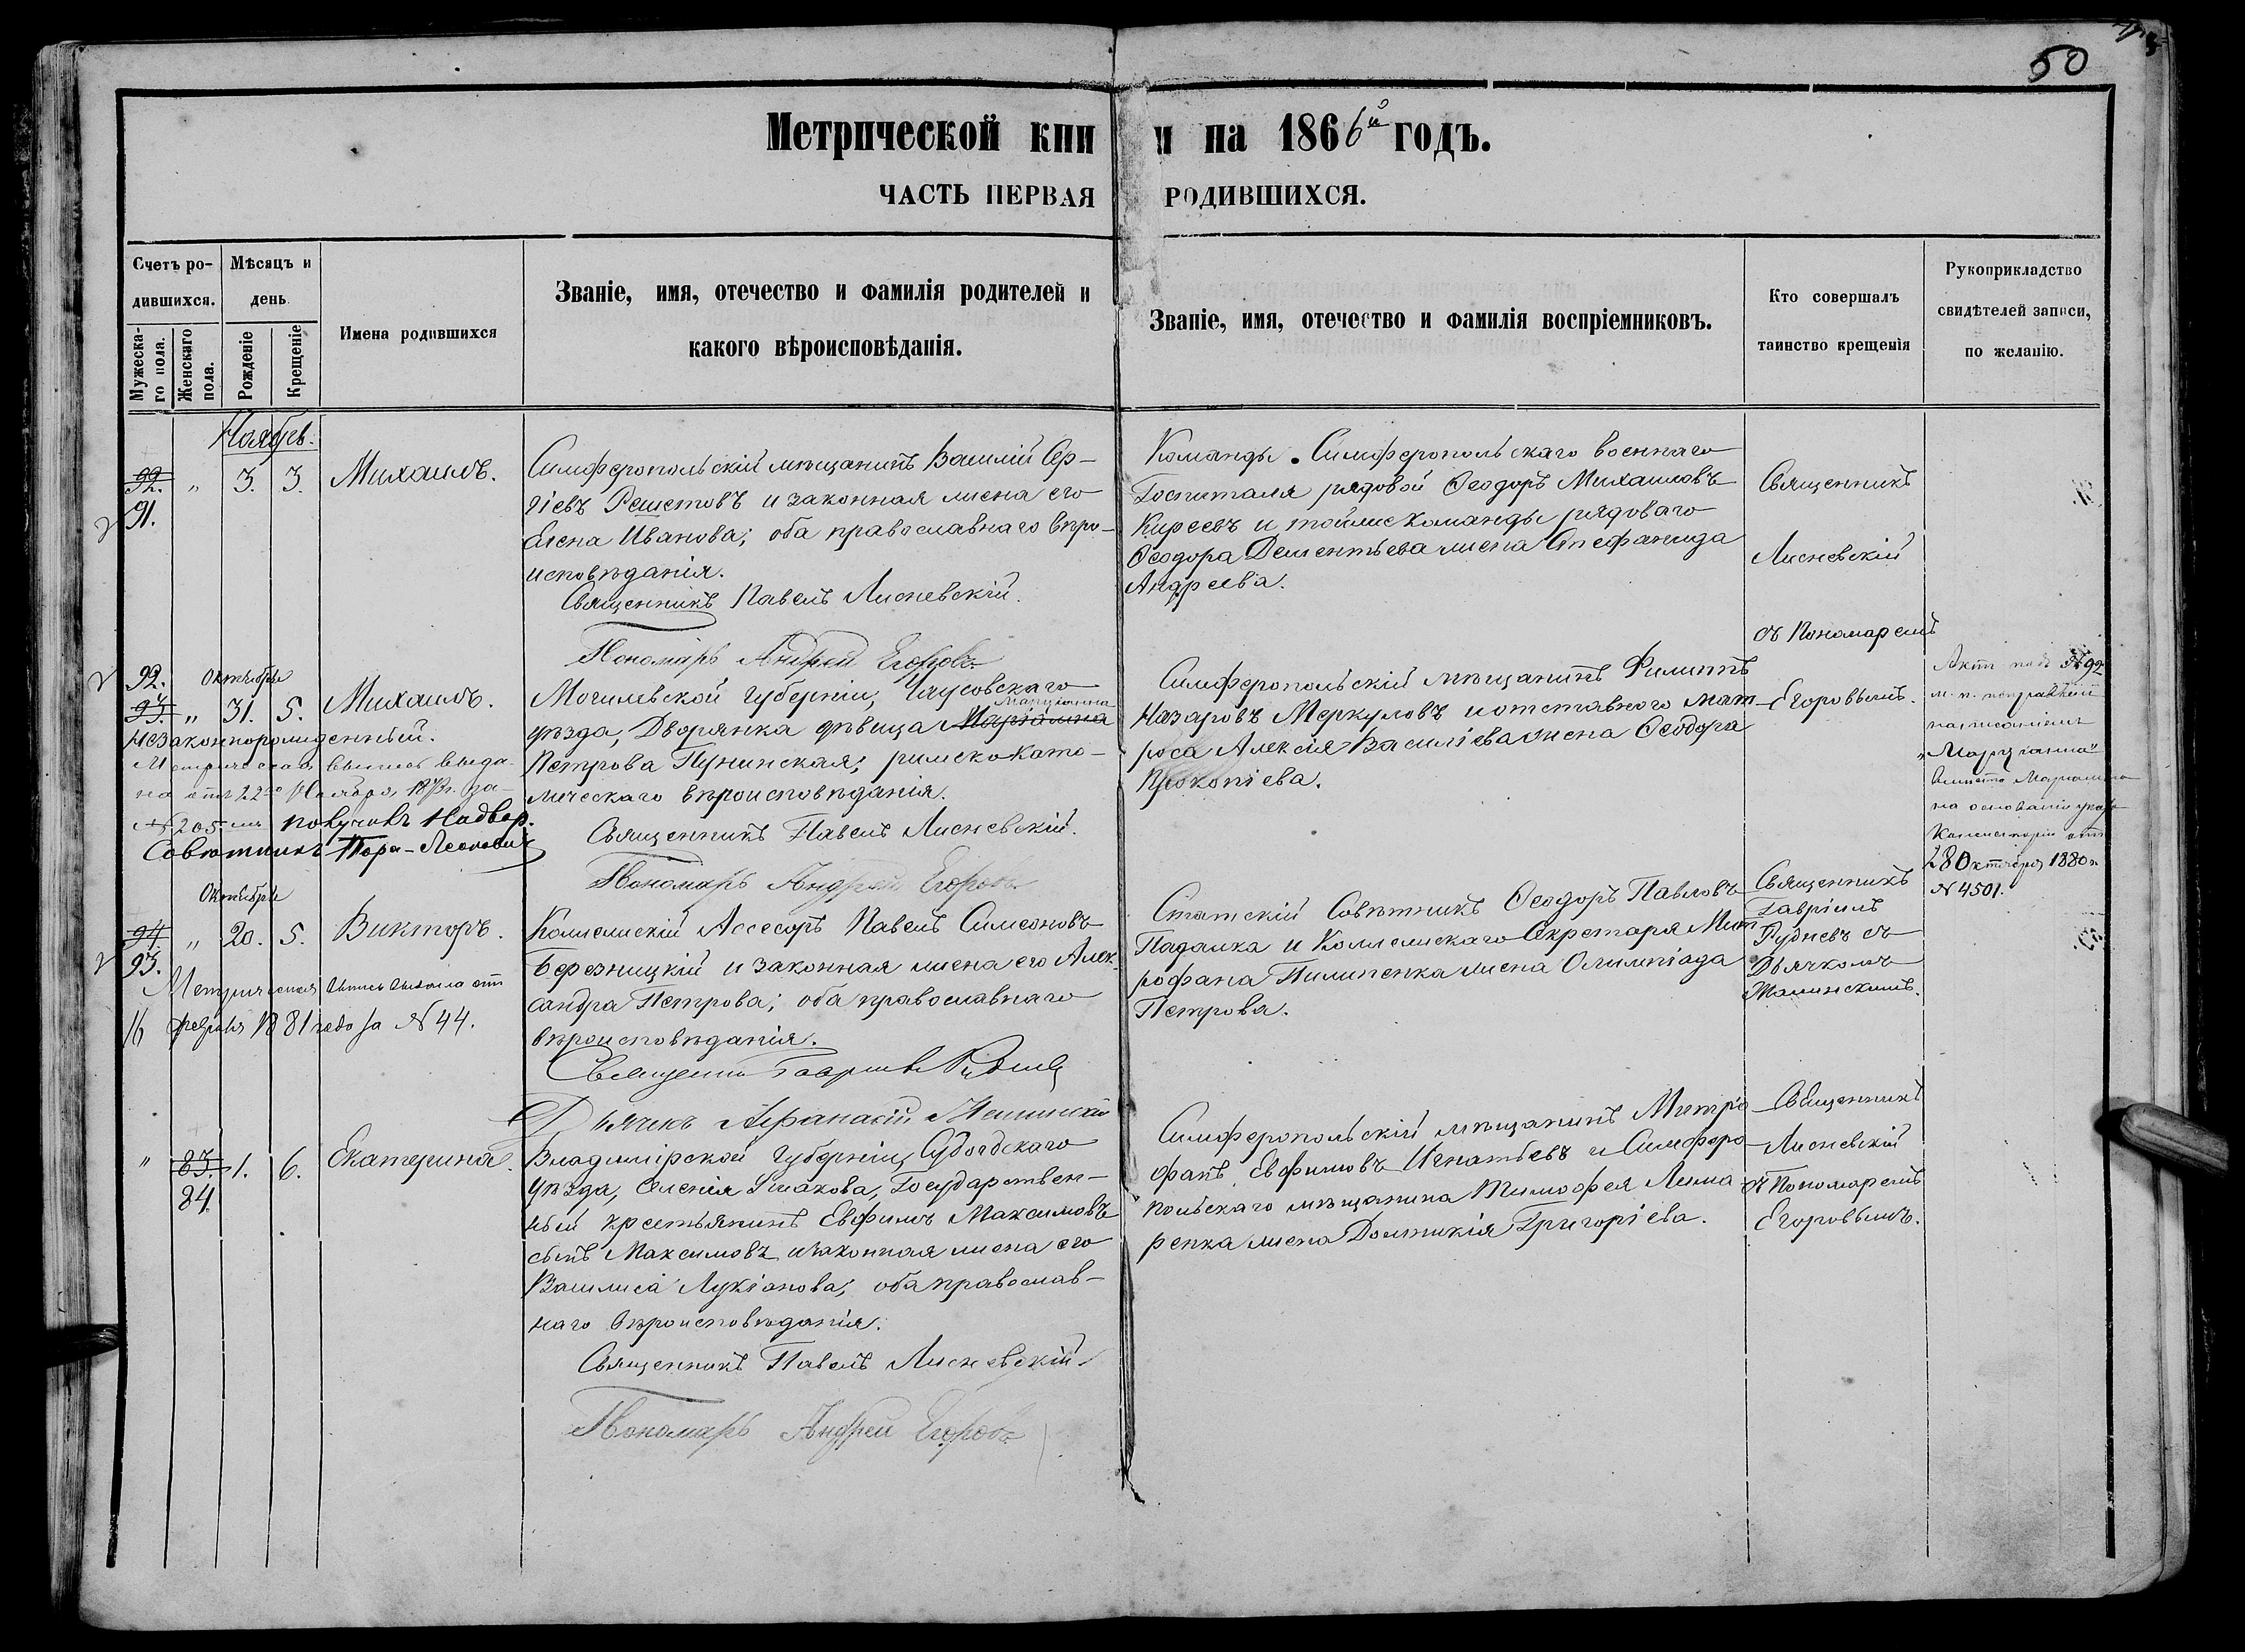 50
Метрической кни и на 1866й годъ.
ЧАСТЬ ПЕРВАЯ РОДИВШИХСЯ.
Счетъ ро-
дившихся.
Мужеска-
го пола.
Женскаго
пола.
Мѣсяцъ и
день
Рожденіе
Крещеніе
Имена родившихся
Званіе, имя, отечество и фамилія родителей и
какого вѣроисповѣданія.
Званіе, имя, отечество и фамилія воспріемниковъ.
Кто совершалъ
таинство крещенія
Рукоприкладство
свидѣтелей записи,
по желанію.
Ноябрь.
92. " 3. 3. Михаилъ.
91.
Симферопольскій мѣщанинъ Василій Сер-
гіевъ Решетовъ и законная жена его
Елена Иванова; оба православнаго вѣро-
исповѣданія.
Священникъ Павелъ Лисневскій.
Пономарь Андрей Егоровъ
Команды Симферопольскаго военнаго
Госпиталя рядовой Ѳеодоръ Михаиловъ
Киреевъ и тойже команды рядоваго
Ѳеодора Дементьева жена Стефанида
Андреева.
Священникъ
Лисневскій
съ Пономаремъ
Егоровымъ.
92. Октября
93. " 31. 5. Михаилъ.
незаконнорожденный.
Метрическая выпись выда-
на отъ 22го Ноября за
№ 205
получилъ Надвор.
Совѣтникъ
Могилевской губерніи, Чаусовскаго
уѣзда, Дворянка дѣвица Маріанна
Петрова Пунинская; римско-като-
лическаго вѣроисповѣданія.
Священникъ Павелъ Лисневскій.
Пономарь Андрей Егоровъ
Симферопольскій мѣщанинъ Филиппъ
Назаровъ Меркуловъ и отставного мат-
роса Алексія Васильева жена Ѳеодора
Прокопіева.
Актъ подъ № 92
написаніемъ
вмѣсто
на основаніи указа
Консисторіи отъ
28 Октября 1880 г
№ 4501.
Октября
94. " 20. 5. Викторъ.
93.
Метрическая выпись выдана отъ
16 февраля 1881 года за № 44.
Колежскій Ассесоръ Павелъ Симеоновъ
Березницкій и законная жена его Алек-
сандра Петрова; оба православнаго
вѣроисповѣданія.
Священникъ Гавріилъ Рудневъ
Дьячекъ Афанасій
Статскій Совѣтникъ Ѳеодоръ Павловъ
Падалка и Коллежскаго Секретаря Мит
рофана Пилипенка жена Олимпіада
Петрова.
Священникъ
Гавріилъ
Рудневъ съ
Дьячкомъ
" 83. 1. 6. Екатерина.
84.
Владимірской губерніи, Судогдскаго
уѣзда, Селенія Государствен-
ный крестьянинъ Евфимъ Максимовъ
сынъ Максимовъ и законная жена его
Василиса Лукіанова; оба православ-
наго вѣроисповѣданія.
Священникъ Павелъ Лисневскій
Пономарь Андрей Егоровъ
Симферопольскій мѣщанинъ Митро
фанъ Евфимовъ Игнатьевъ и Симферо-
польскаго мѣщанина Тимофея Лима
ренка жена Домникія Григоріева.
Священникъ
Лисневскій
съ Пономаремъ
Егоровымъ.